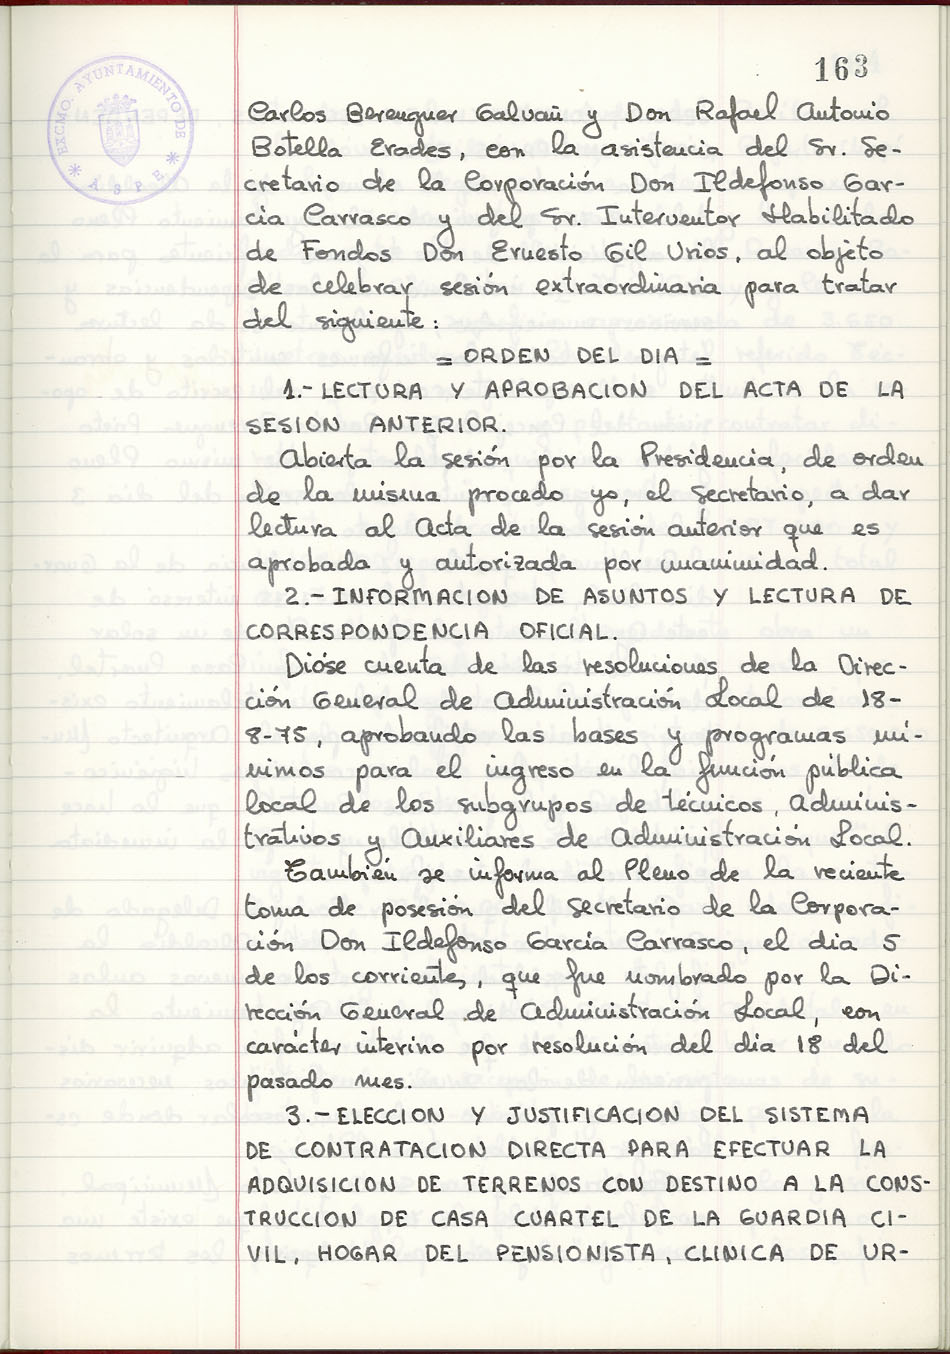 163
EXCMO. AYUNTAMIENTO DE
* ASPE *
Carlos Berenguer Galvañ y Don Rafael Antonio
Botella Erades, con la asistencia del Sr. Se-
cretario de la Corporación Don Ildefonso Gar-
cia Carrasco y del Sr. Interventor Habilitado
de Fondos Don Ernesto Gil Urios, al objeto
de celebrar sesión extraordinaria para tratar
del siguiente:
= ORDEN DEL DIA =
1.- LECTURA Y APROBACION DEL ACTA DE LA
SESION ANTERIOR.
Abierta la sesión por la Presidencia, de orden
de la misma procedo yo, el Secretario, a dar
lectura al Acta de la sesión anterior que es
aprobada y autorizada por unanimidad.
2.- INFORMACION DE ASUNTOS Y LECTURA DE
CORRESPONDENCIA OFICIAL.
Dióse cuenta de las resoluciones de la Direc-
ción General de Administración Local de 18-
8-75, aprobando las bases y programas mí-
nimos para el ingreso en la función pública
local de los subgrupos de técnicos, Adminis-
trativos y Auxiliares de Administración Local.
También se informa al Pleno de la reciente
toma de posesión del Secretario de la Corpora-
ción Don Ildefonso García Carrasco, el dia 5
de los corrientes, que fue nombrado por la Di-
rección General de Administración Local, con
carácter interino por resolución del dia 18 del
pasado mes.
3.- ELECCION Y JUSTIFICACION DEL SISTEMA
DE CONTRATACION DIRECTA PARA EFECTUAR LA
ADQUISICION DE TERRENOS CON DESTINO A LA CONS-
TRUCCION DE CASA CUARTEL DE LA GUARDIA CI-
VIL, HOGAR DEL PENSIONISTA, CLINICA DE UR-